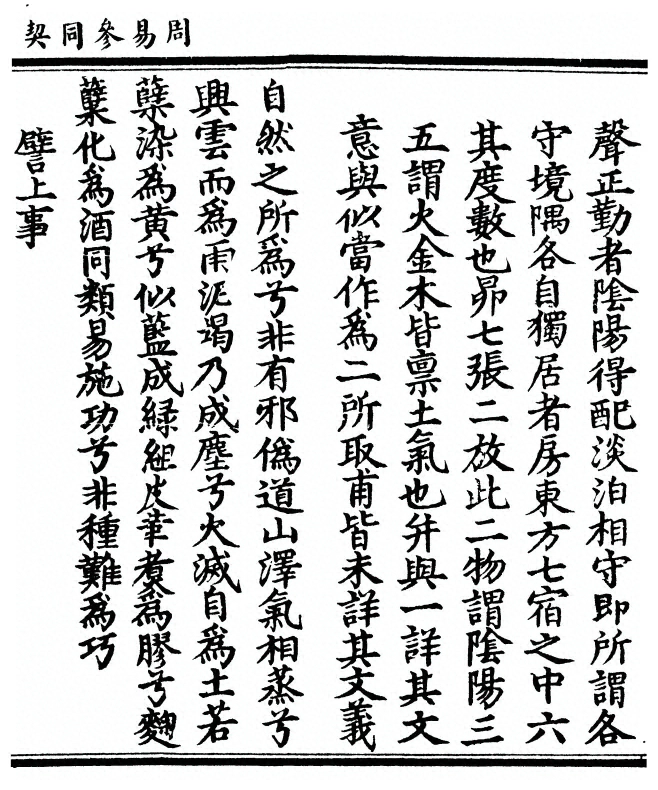 周易參同契
聲正勤者陰陽得配淡泊相守即所謂各
守境隅各自獨居者房東方七宿之中六
其度數也昴七張二放此二物謂陰陽三
五謂火金木皆禀土氣也并與一詳其文
意與似當作爲二所取甫皆未詳其文義
自然之所爲兮非有邪僞道山澤氣相蒸兮
興雲而爲雨泥竭乃成塵兮火滅自爲土若
蘗染爲黄兮似藍成緑組皮革煮爲膠兮麴
糵化爲酒同類易施功兮非種難爲巧
譬上事